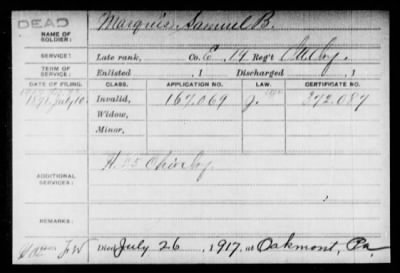 DEAD
NAME OF SOLDIER: Marquis, Samuel B.
SERVICE: Late rank, Co. E, 14 Reg't Cav.
TERM OF SERVICE: Enlisted , 1 Discharged , 1
DATE OF FILING. CLASS. APPLICATION NO. LAW. CERTIFICATE NO.
July 10 Invalid, 167,069 372,087
Widow,
Minor,
ADDITIONAL SERVICES:
REMARKS:
Died July 26, 1917, at Oakmont, Pa